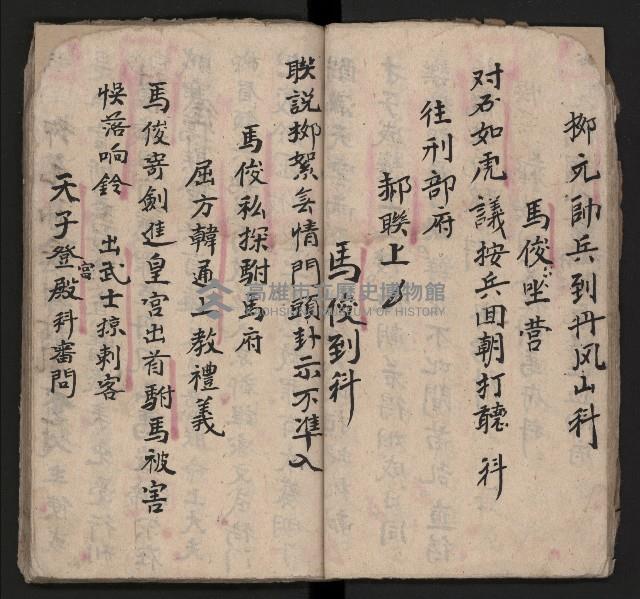 柳元帥兵到丹凤山科
馬俊坐营
对如虎議按兵回朝打聽科
往刑部府
郝聯上
馬俊到科
聫説柳絮無情門頭卦示不準入
馬俊私探駙馬府
屈方韓通上教禮義
馬俊寄劍進皇宫出首駙馬被害
悮落响鈴 出武士掠刺客
天子登殿科審問
宫
高雄市立歷史博物館
KAOHSIUNG MUSEUM OF HISTORY